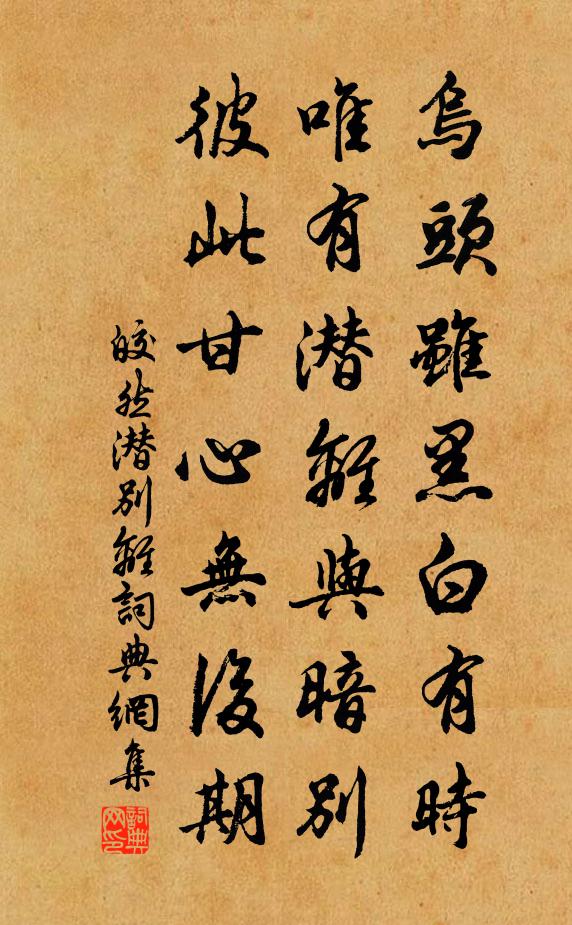 烏頭雖黑白有時
唯有潜離與暗別
彼此甘心無後期
皎然潜別離詞典網集
詞典網印